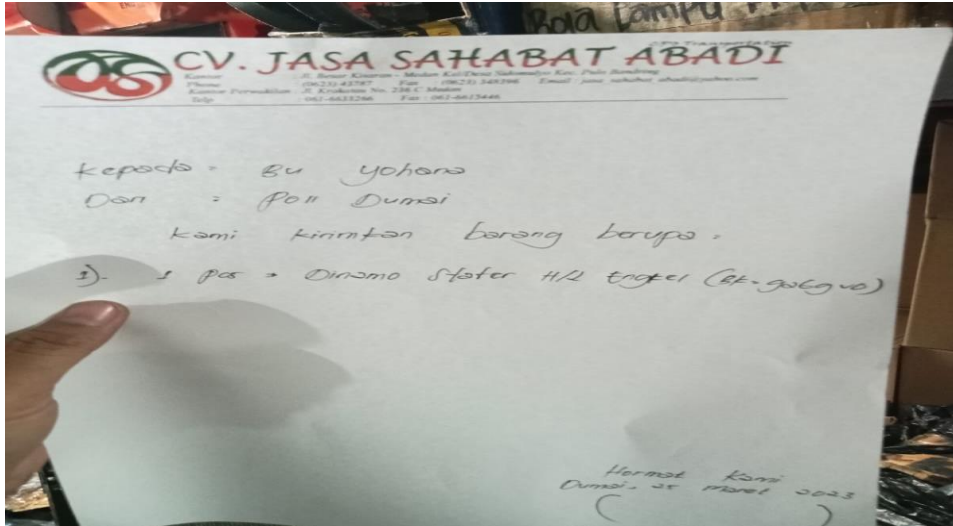 Bola Lampu
CV. JASA SAHABAT ABADI
Kantor : Jl. Besar Kisaran - Medan Kel/Desa Sidomulyo Kec. Pulo Bandring
Phone : (0623) Fax : (0623) 348396 Email : jasa_sahabat_abadi@yahoo.com
Kantor Perwakilan : Jl. Krakatau No. 236 C Medan
Telp : 061-6635266 Fax : 061-6615446
Kepada = Bu Yohana
Dari = Poll Dumai
Kami kirimkan barang berupa =
1). 1 pcs = Dinamo Stater H/L Engkel
Hormat Kami
Dumai, 25 Maret 2023
( )